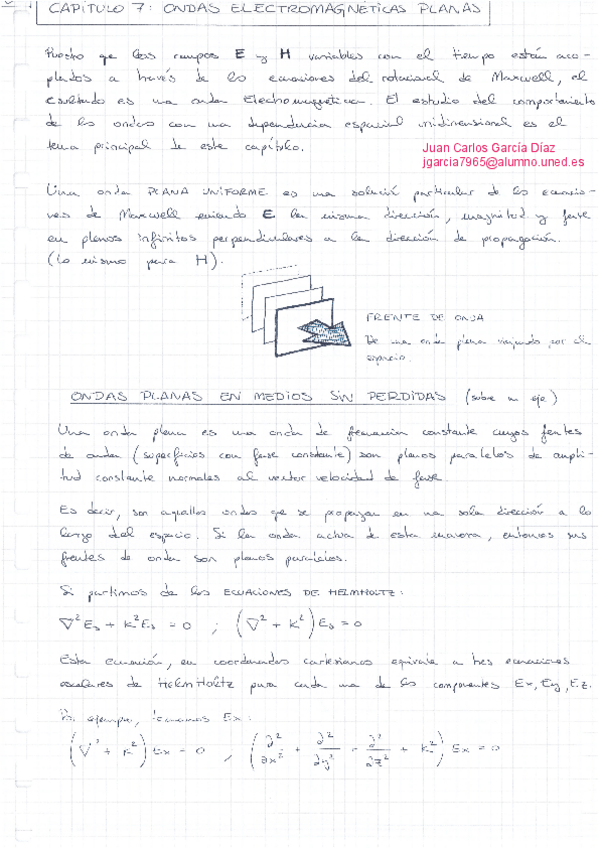 CAPITULO 7: ONDAS ELECTROMAGNETICAS PLANAS
Puesto que los campos E y H variables con el tiempo están aco-
plados a través de las ecuaciones del rotacional de Maxwell, el
resultado es una onda Electromagnética. El estudio del comportamiento
de las ondas con una dependencia espacial unidimensional es el
tema principal de este capítulo.
Juan Carlos García Díaz
jgarcia7965@alumno.uned.es
Una onda PLANA UNIFORME es una solución particular de las ecuacio-
nes de Maxwell teniendo E la misma dirección, magnitud y fase
en planos infinitos perpendiculares a la dirección de propagación.
(Lo mismo para H).
FRENTE DE ONDA
De una onda plana viajando por el
espacio.
ONDAS PLANAS EN MEDIOS SIN PERDIDAS (sobre un eje)
Una onda plana es una onda de frecuencia constante cuyos frentes
de onda (superficies con fase constante) son planos paralelos de ampli-
tud constante normales al vector velocidad de fase.
Es decir, son aquellas ondas que se propagan en una sola dirección a lo
largo del espacio. Si la onda actua de esta manera, entonces sus
frentes de onda son planos
Si partimos de las ECUACIONES DE HELMHOLTZ:
∇²Es + k²Es = 0 ; (∇² + k²)Es = 0
Esta ecuación, en coordenadas cartesianas equivale a tres ecuaciones
escalares de Helmholtz para cada una de las componentes Ex, Ey, Ez.
Por ejemplo, tenemos Ex:
(∇² + k²) Ex = 0 , (∂²/∂x² + ∂²/∂y² + ∂²/∂z² + k²) Ex = 0